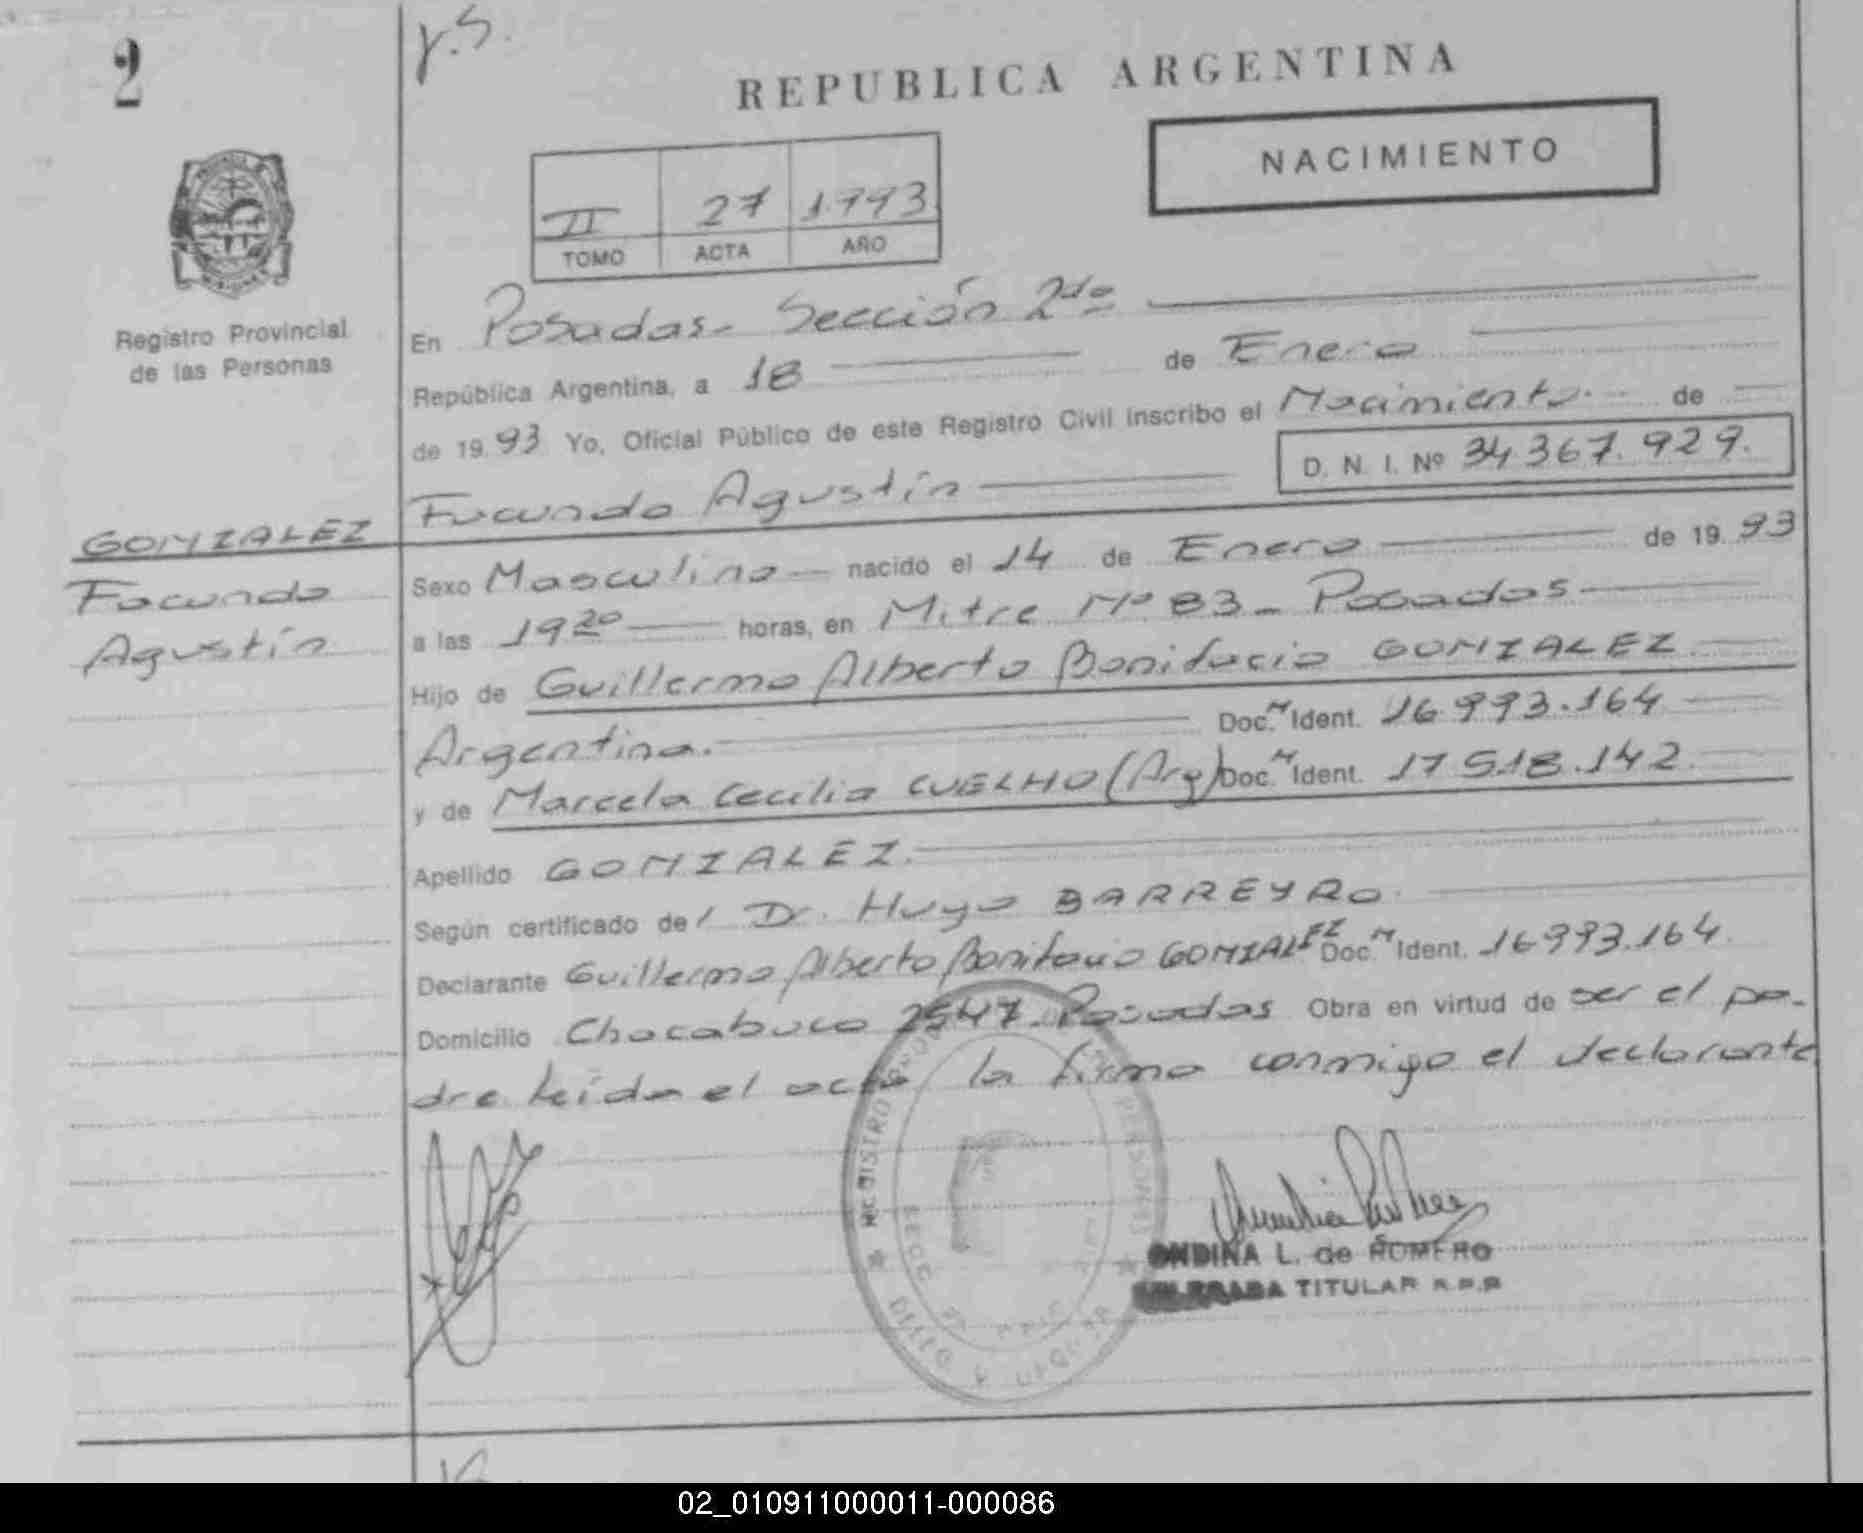 2
REPUBLICA ARGENTINA
NACIMIENTO
II 27 1.993
TOMO ACTA AÑO
Registro Provincial
de las Personas
En Posadas- Sección 2da
República Argentina, a 18 de Enero
de 19.93 Yo, Oficial Público de este Registro Civil inscribo el Nacimiento. de
D. N. I. Nº 34.367.929.
Facundo Agustín
GONZALEZ
Facundo
Agustín
Sexo Masculino nacido el 14 de Enero de 19.93
a las 19 20 horas, en Mitre Nº 83 - Posadas
Hijo de Guillermo Alberto Bonifacio GONZALEZ
Argentino. Doc. N Ident. 16.993.164
y de Marcela Cecilia CUELHO (Arg) Doc. N Ident. 17.518.142
Apellido GONZALEZ.
Según certificado del Dr. Hugo BARREYRO.
Declarante Guillermo Alberto Bonifacio GONZALEZ Doc. N Ident. 16.993.164.
Domicilio Chacabuco 2547- Posadas Obra en virtud de ser el pa-
dre leída el acta, la firma conmigo el declarante
ONDINA L. de ROMERO
TITULAR R.P.P
02_010911000011-000086